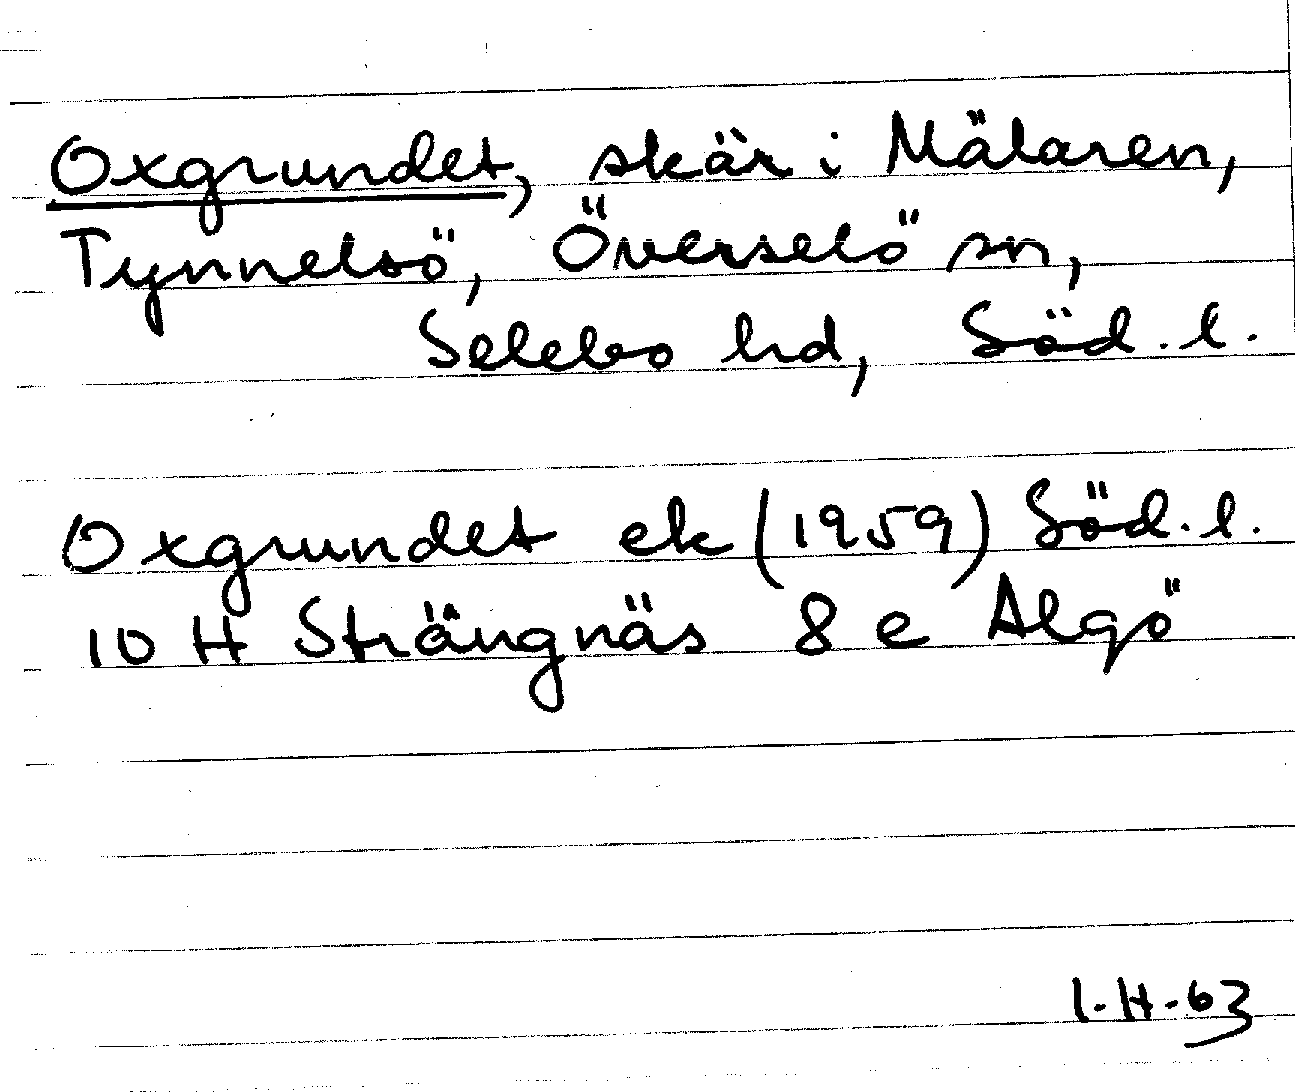 Oxgrundet, skär i Mälaren,
Tynnelsö, Överselö sn,
Selebo hd, Söd. l.
Oxgrundet ek (1959) Söd. l.
10 H Strängnäs 8 e Algö
I. H. 63